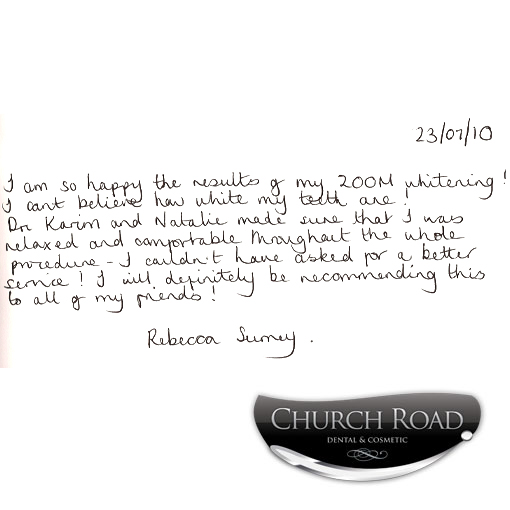 23/07/10
I am so happy the results of my ZOOM whitening!
I cant believe how white my teeth are.
Dr. Karim and Natalie made sure that I was
relaxed and comfortable throughout the whole
procedure - I couldn't have asked for a better
service! I will definitely be recommending this
to all of my friends!
Rebecca
CHURCH ROAD
DENTAL & COSMETIC